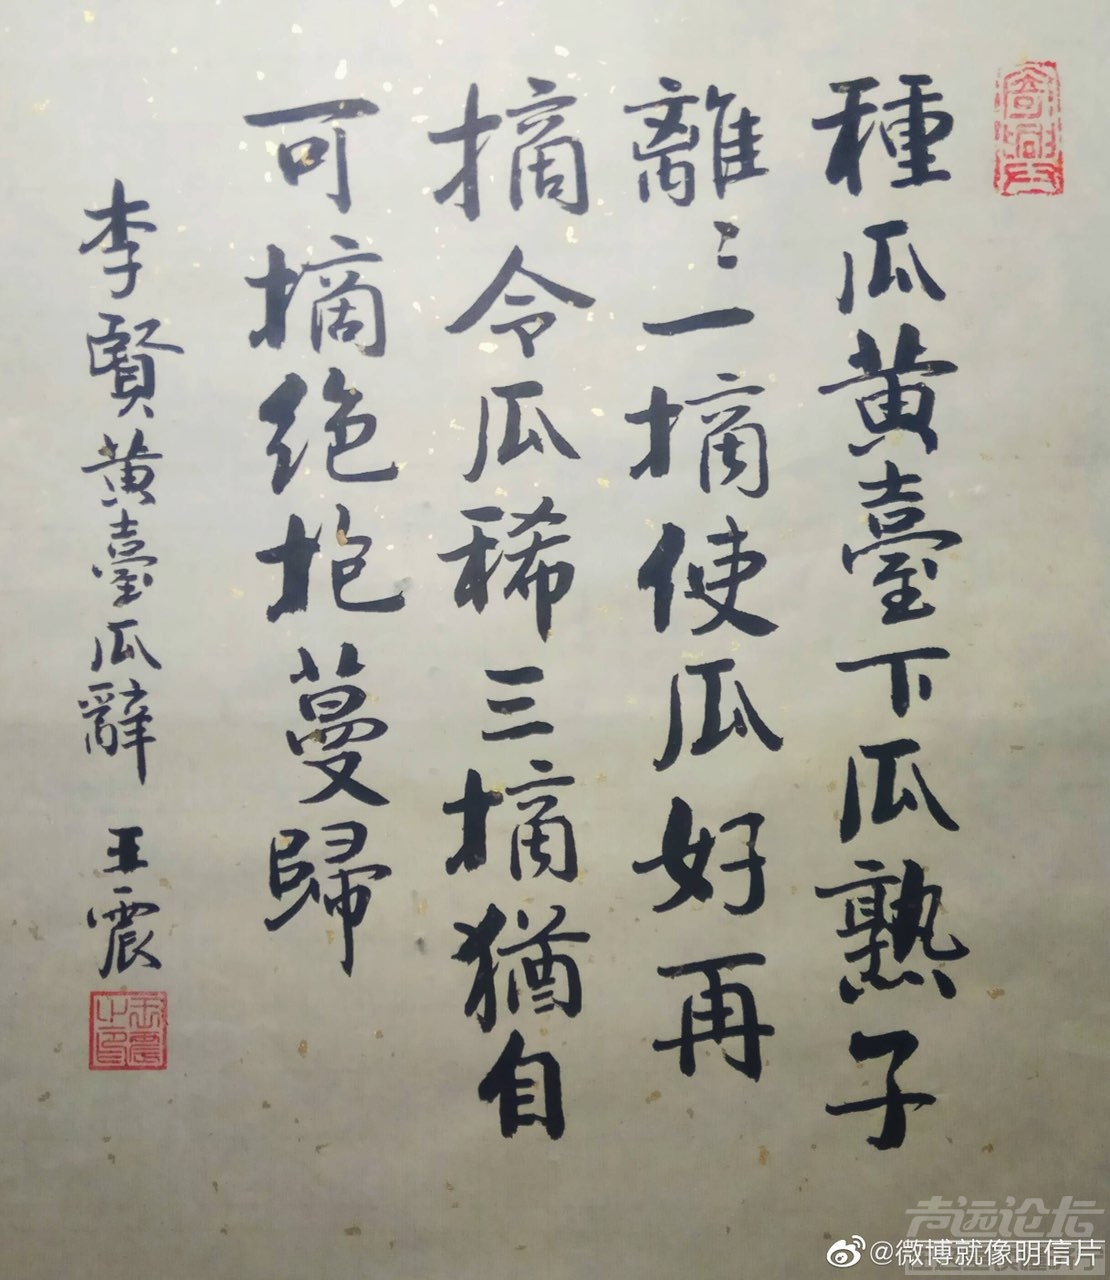 種瓜黄臺下瓜熟子
離〻一摘使瓜好再
摘令瓜稀三摘猶自
可摘絶抱蔓歸
李賢黄臺瓜辭 王震
王震之印
声远论坛
@微博就像明信片